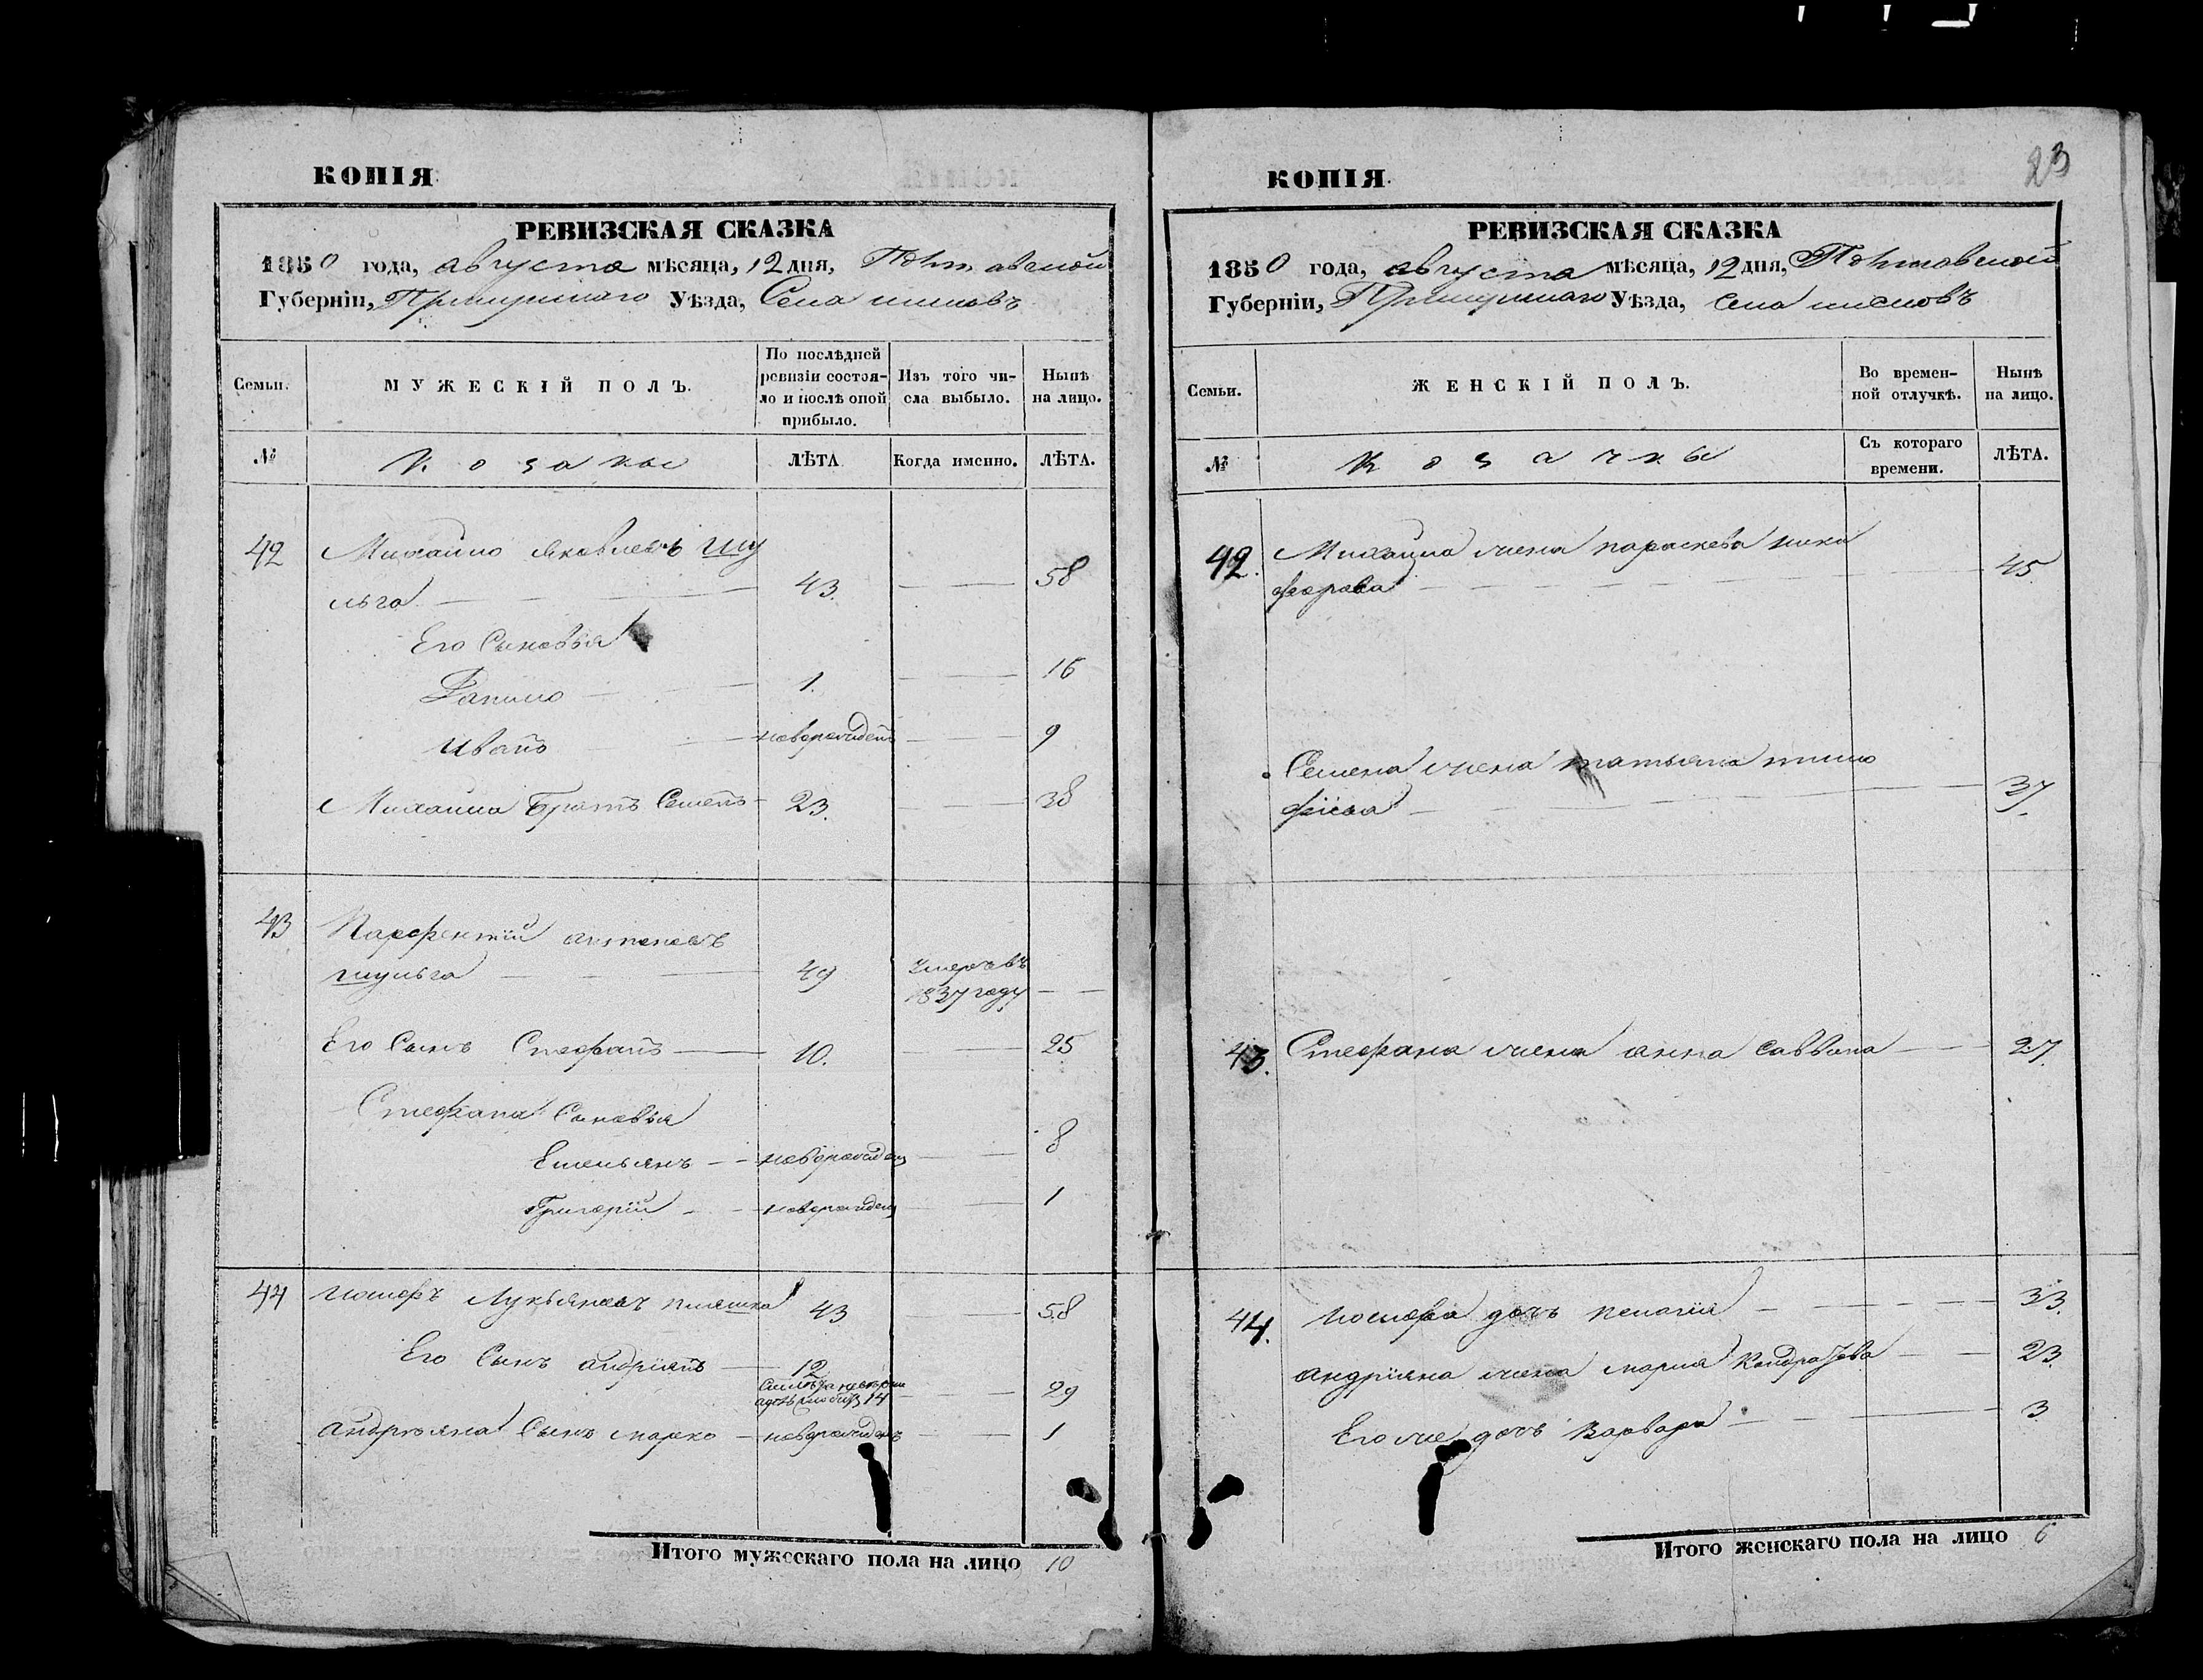 КОПІЯ
РЕВИЗСКАЯ СКАЗКА
1850 года, августа мѣсяца, 12 дня, Полтавской
Губерніи, Уѣзда, Села
Семьи.
МУЖЕСКІЙ ПОЛЪ.
По послѣдней ревизіи состоя-
ло и послѣ оной прибыло.
Изъ того чи-
сла выбыло.
Нынѣ на лицо.
№
Козаки
ЛѢТА
Когда именно.
ЛѢТА.
42 Михайло Яковлевъ Шу
льга 43. 58
Его Сыновья
Данило 1. 16
Иванъ новорожденъ 9
Михайла Братъ Семенъ 23. 38
43 Парфентій Антоновъ
Шульга 49 умеръ въ
1837 году
Его Сынъ Стефанъ 10. 25
Стефана Сыновья
Емельянъ новорожден 8
Григорій новорожден 1
44 Иосифъ Лукьяновъ 43 58
Его Сынъ Андріянъ 12
14 29
Андріяна Сынъ Марко новорожденъ 1
Итого мужескаго пола на лицо 10
23
КОПІЯ.
РЕВИЗСКАЯ СКАЗКА
1850 года, августа мѣсяца, 12 дня, Полтавской
Губерніи, Уѣзда, Села
Семьи.
ЖЕНСКІЙ ПОЛЪ.
Во времен-
ной отлучкѣ.
Нынѣ
на лицо.
№
Козачки
Съ котораго
времени.
ЛѢТА.
42. Михайла жена Параскева Ники
форова 45
Семена жена Татьяна Тимо
фіева 37.
43. Стефана жена Анна Саввина 27.
44. Иосифа дочь Пелагія 33.
Андріяна жена Марія Кондратова 23.
Его же дочь Варвара 3
Итого женскаго пола на лицо 6